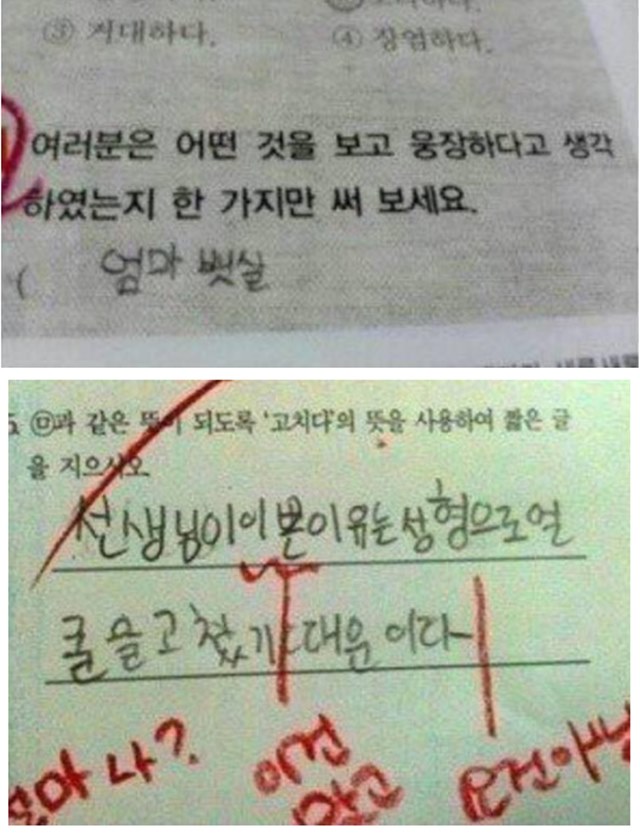 ③ 거대하다.
④ 장엄하다.
여러분은 어떤 것을 보고 웅장하다고 생각
하였는지 한 가지만 써 보세요.
( 엄마 뱃살
5. ㉤과 같은 뜻이 되도록 '고치다'의 뜻을 사용하여 짧은 글
을 지으시오
선생님이이쁜이유는성형으로얼
굴을고쳤기대문이다
나?
이건
맞고
요건아님